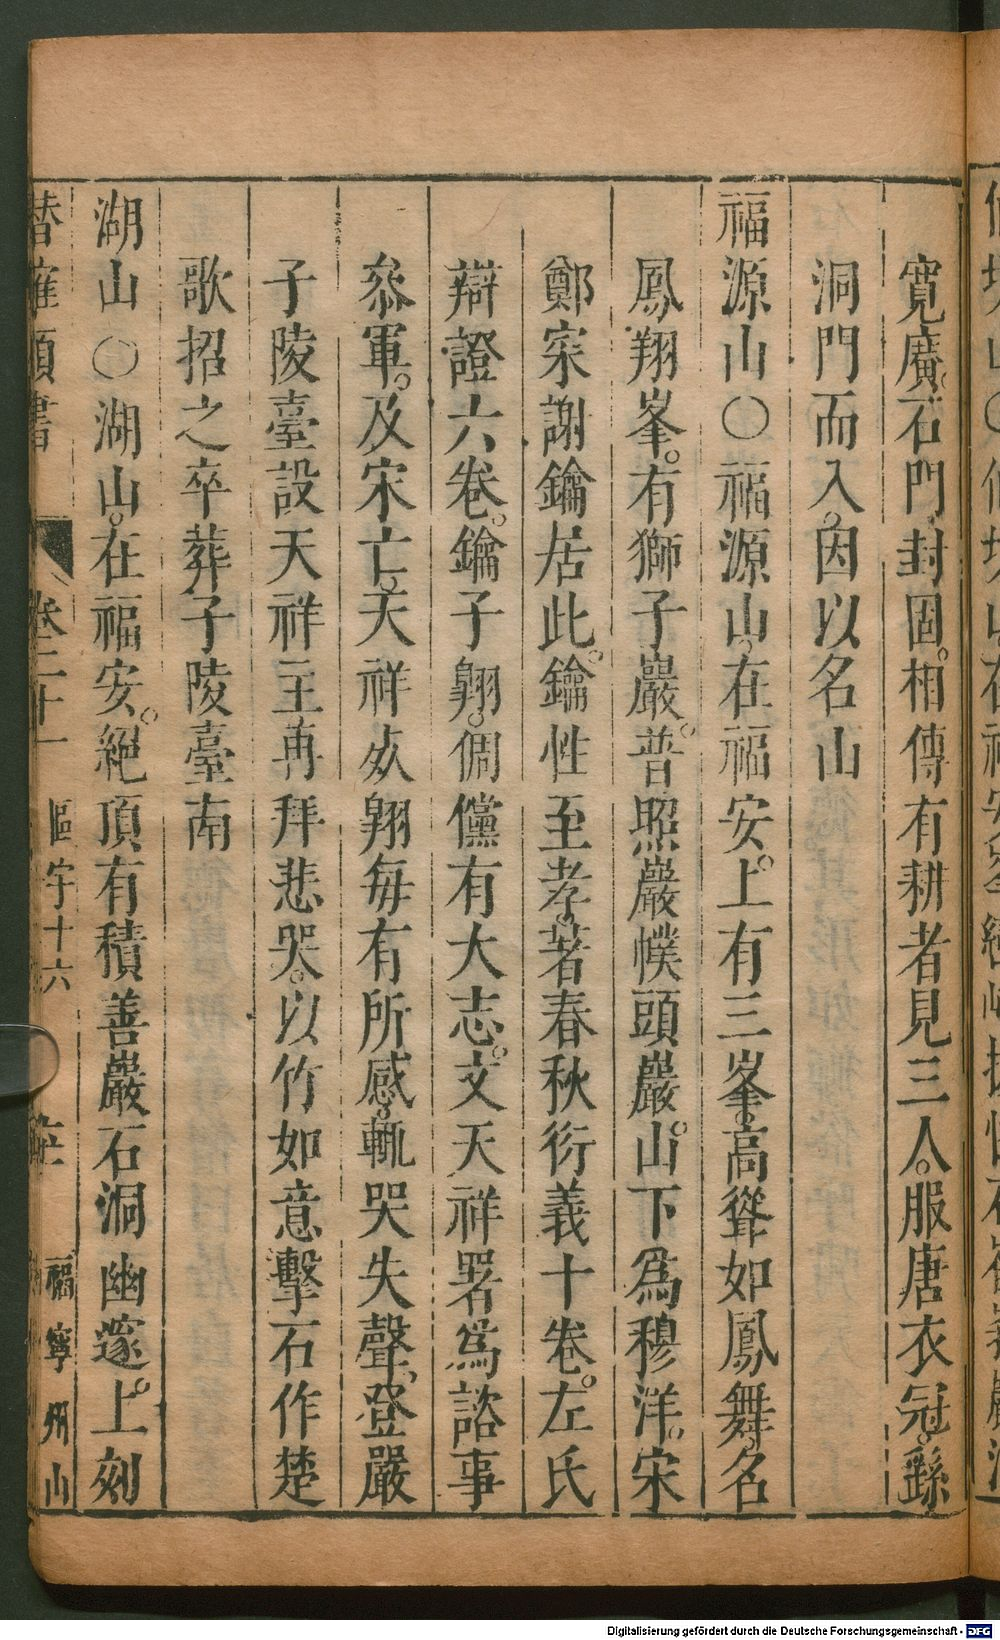 寬廣。石門封固。相傳有耕者見三人。服唐衣冠。繇
洞門而入。因以名山
福源山〇福源山。在福安。上有三峯。高聳如鳳舞。名
鳳翔峯。有獅子巖。普照巖。幞頭巖。山下為穆洋。宋
鄭宷謝鑰居此。鑰性至孝。著春秋衍義十卷。左氏
辯證六卷。鑰子翱。倜儻有大志。文天祥署為諮事
叅軍。及宋亡。天祥歿。翱每有所感。輒哭失聲。登嚴
子陵臺設天祥主再拜悲哭。以竹如意擊石作楚
歌招之卒葬子陵臺南
湖山〇湖山。在福安。絕頂有積善巖石洞幽邃。上刻
卷二十一 區宇十六 福寧州山
Digitalisierung gefördert durch die Deutsche Forschungsgemeinschaft - DFG